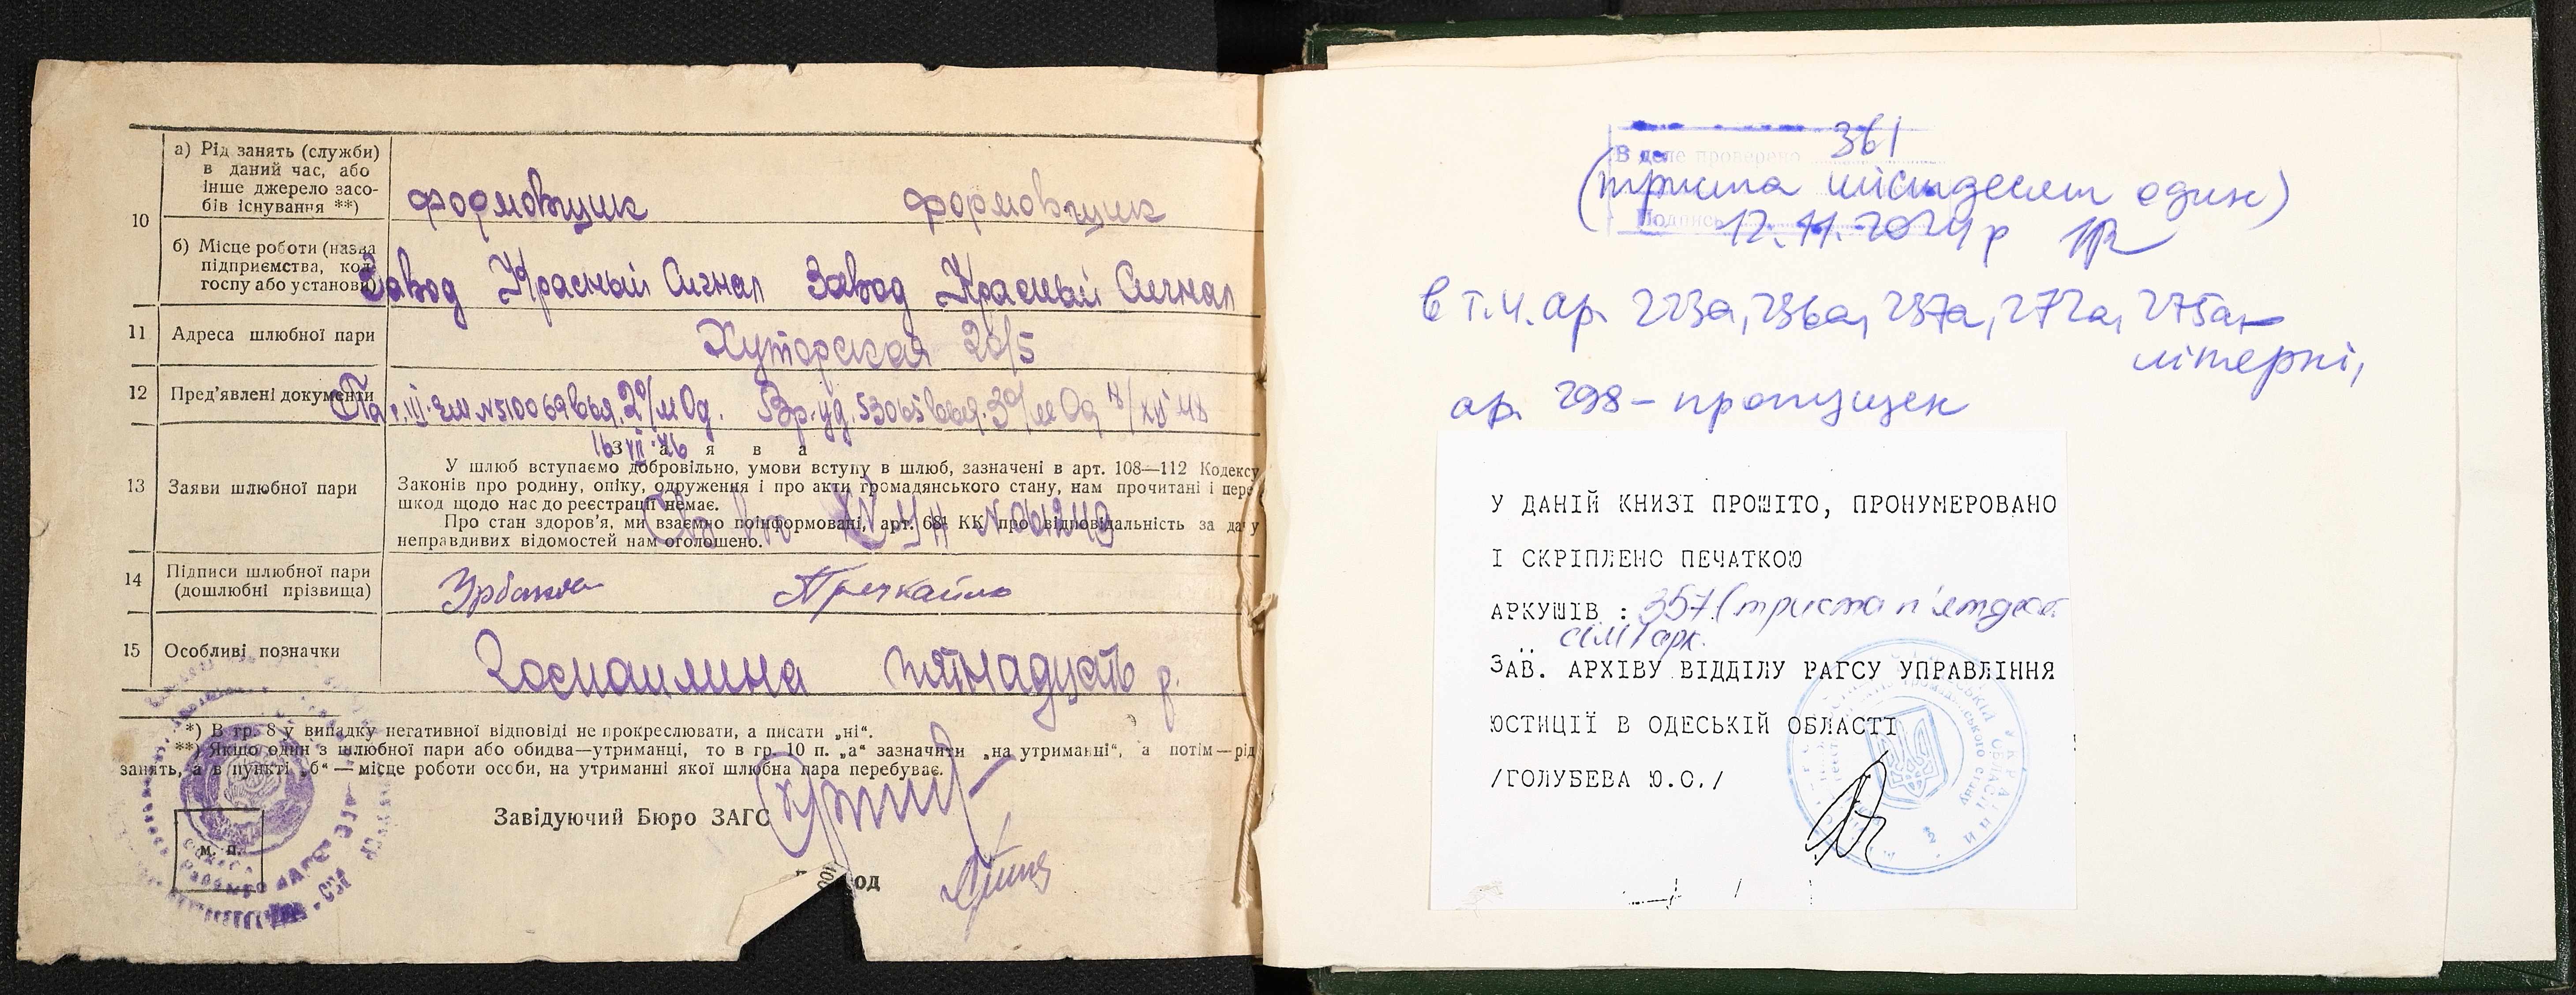 10
а) Рід занять (служби)
в даний час, або
інше джерело засо-
бів існування **)
формовщик формовщик
б) Місце роботи (назва
підприємства, кол-
госпу або установи)
Завод Красный Сигнал Завод Красный Сигнал
11 Адреса шлюбної пари
Хуторская 20/5
12 Пред'явлені документи
16 XII 46
13 Заяви шлюбної пари
З а я в а
У шлюб вступаємо добровільно, умови вступу в шлюб, зазначені в арт. 108—112 Кодексу
Законів про родину, опіку, одруження і про акти громадянського стану, нам прочитані і пере
шкод щодо нас до реєстрації немає.
Про стан здоров'я, ми взаємно поінформовані, арт. 68¹ КК про відповідальність за дачу
неправдивих відомостей нам оголошено.
14 Підписи шлюбної пари
(дошлюбні прізвища)
15 Особливі позначки
Госпошлина пятнадцать р.
*) В гр. 8 у випадку негативної відповіді не прокреслювати, а писати „ні“.
**) Якщо один з шлюбної пари або обидва—утриманці, то в гр. 10 п. „а“ зазначити „на утриманні“, а потім—рід
занять, а в пункті „б“ — місце роботи особи, на утриманні якої шлюбна пара перебуває.
Завідуючий Бюро ЗАГС
м. п.
В деле проверено 361
(триста шістдесят один)
Подпись
12.11.2024р
в т.ч. ар. 223а, 236а, 237а, 272а, 275а –
літерні,
ар. 298 – пропущен
У ДАНІЙ КНИЗІ ПРОШІТО, ПРОНУМЕРОВАНО
І СКРІПЛЕНО ПЕЧАТКОЮ
АРКУШІВ : 357 (триста п'ятдесят
сім) арк.
ЗАВ. АРХІВУ ВІДДІЛУ РАГСУ УПРАВЛІННЯ
ЮСТИЦІЇ В ОДЕСЬКІЙ ОБЛАСТІ
/ГОЛУБЕВА Ю.О./